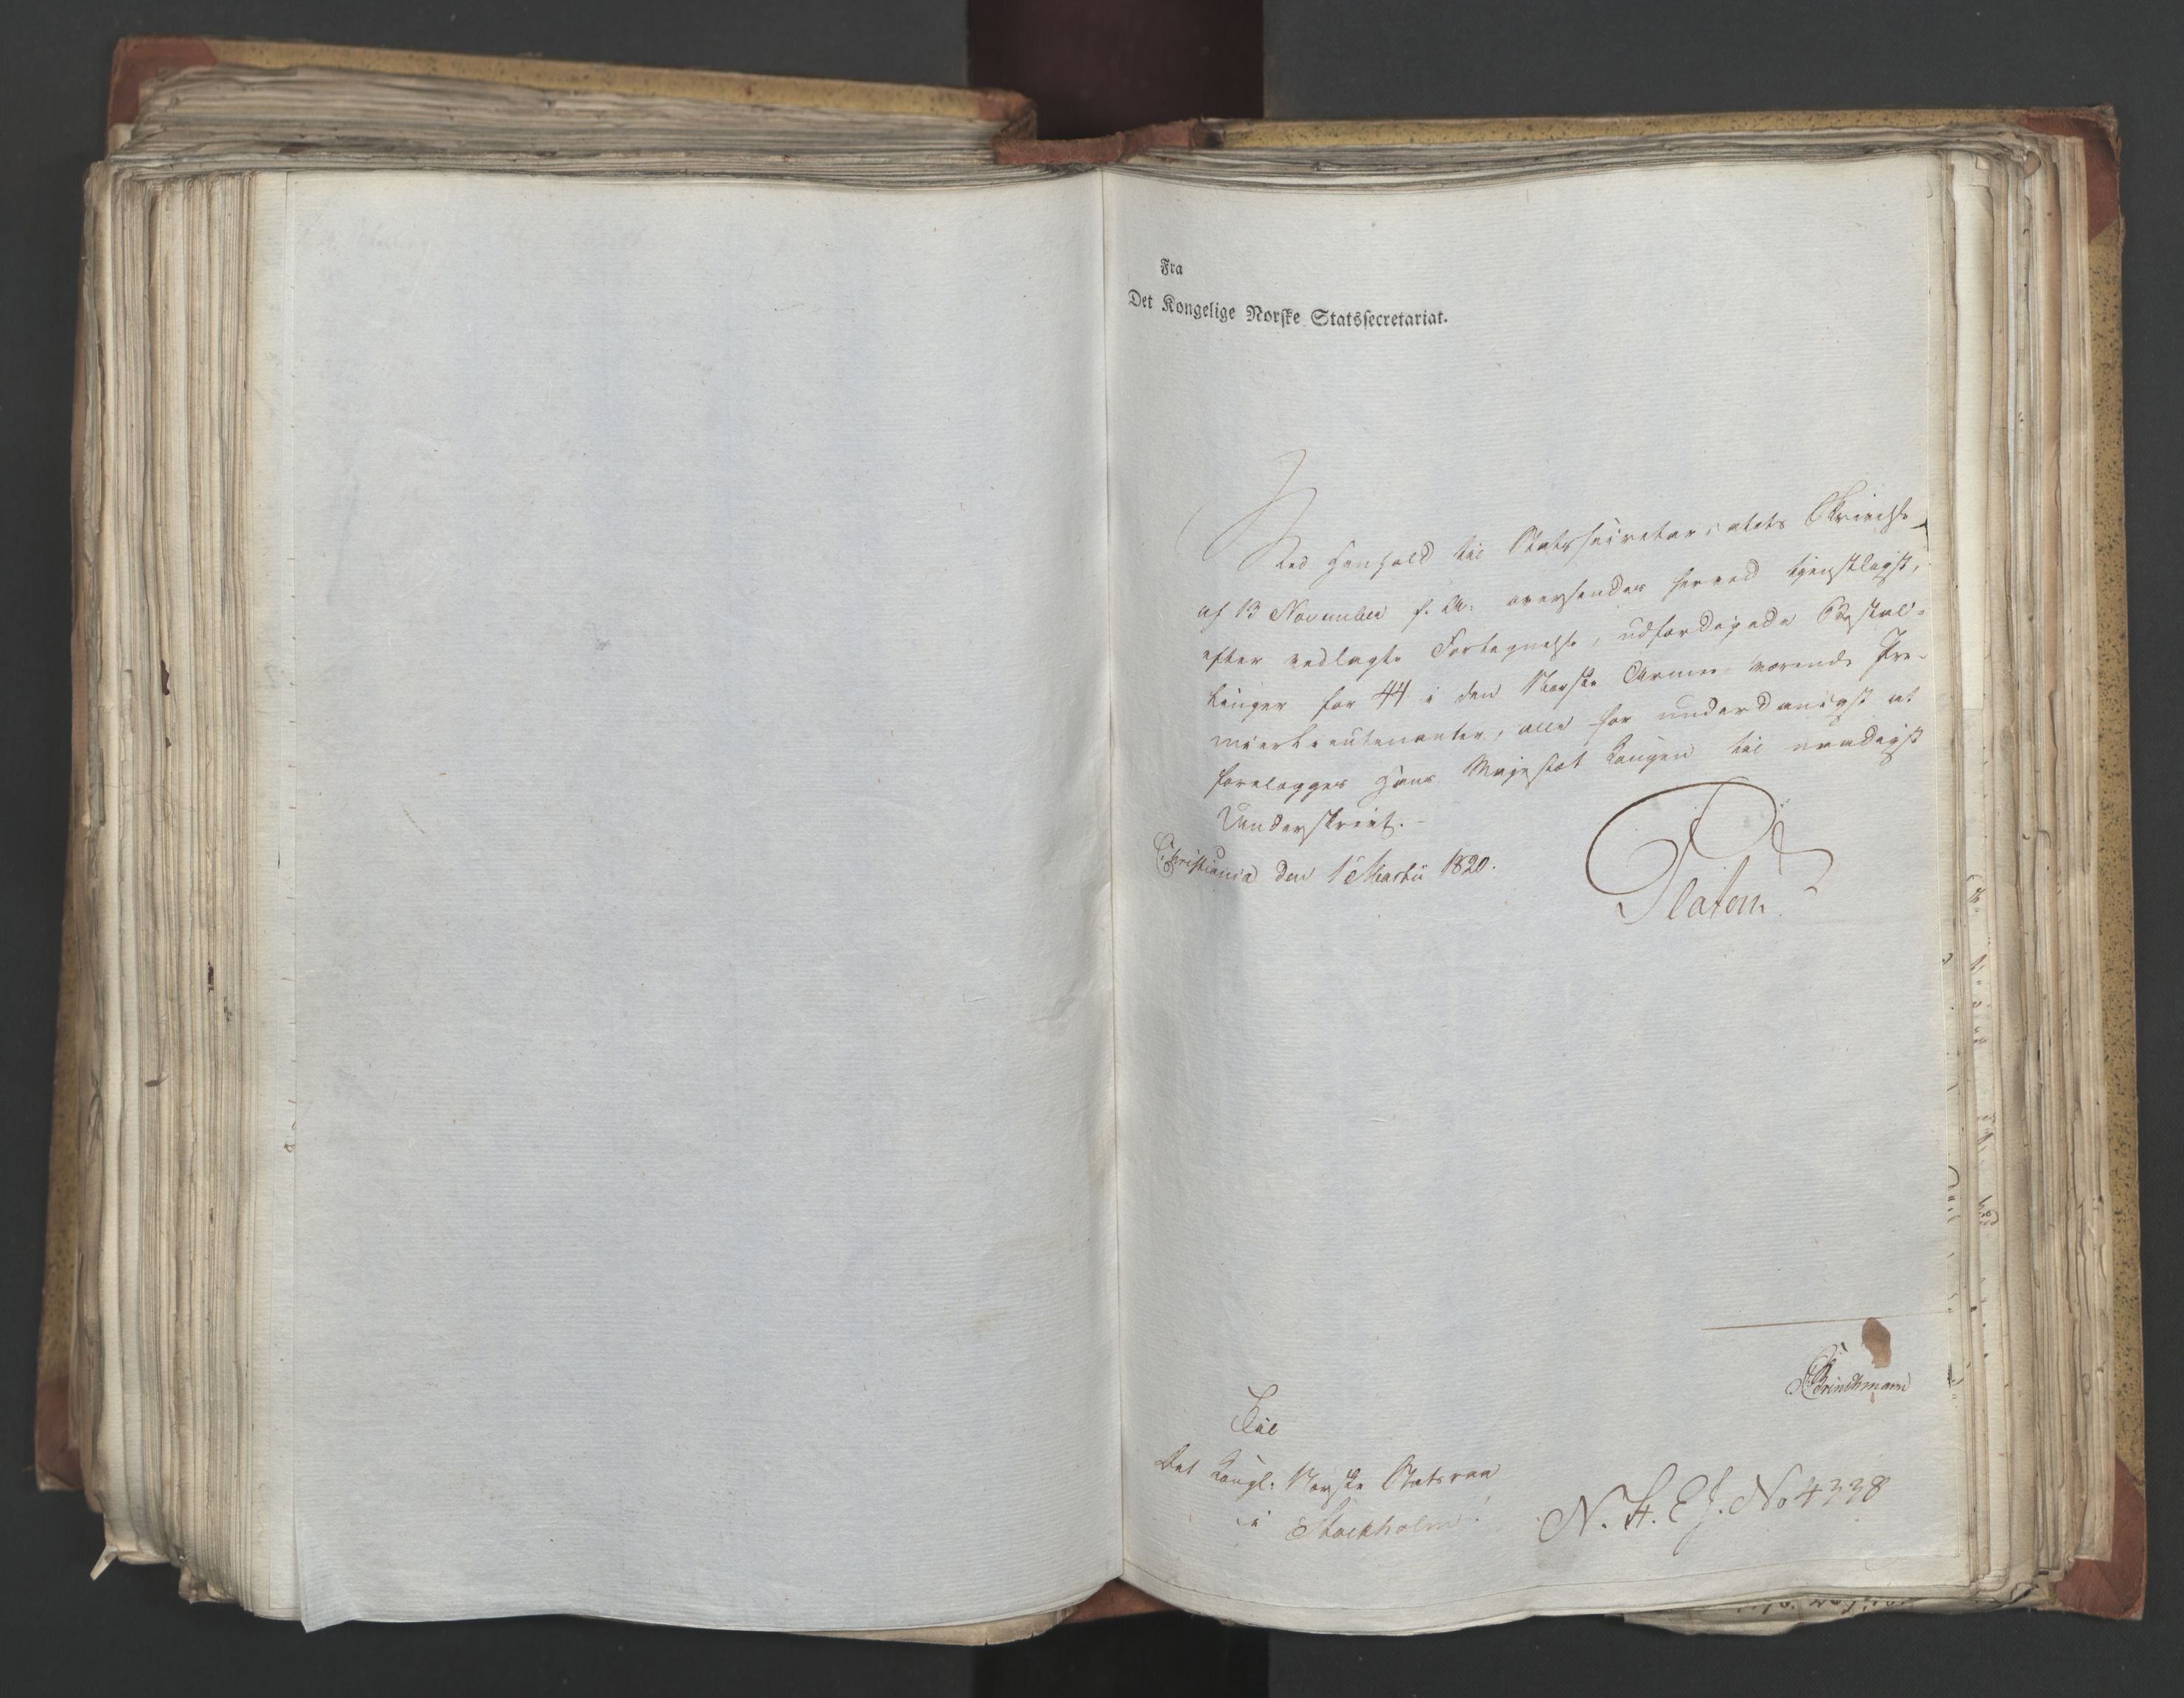 Fra
Det Kongelige Norske Statssecretariat.
Med Henhold til Statssecretariatets Skrivelse
af 13 November f. A. oversendes herved tjenstligst,
efter vedlagte Fortegnelse, udfærdigede Bestal-
linger for 44 i den Norske Armee værende Pre-
mierlieutenanter, alle for underdanigst at
forelægges Hans Majestæt Kongen til naadigst
Underskrivt.
Christiania den 1 Martii 1820.
Platen
Brinchmann
Til
Det Kongl: Norske Statsraad
i Stockholm!
N. H. C. J. No 4338